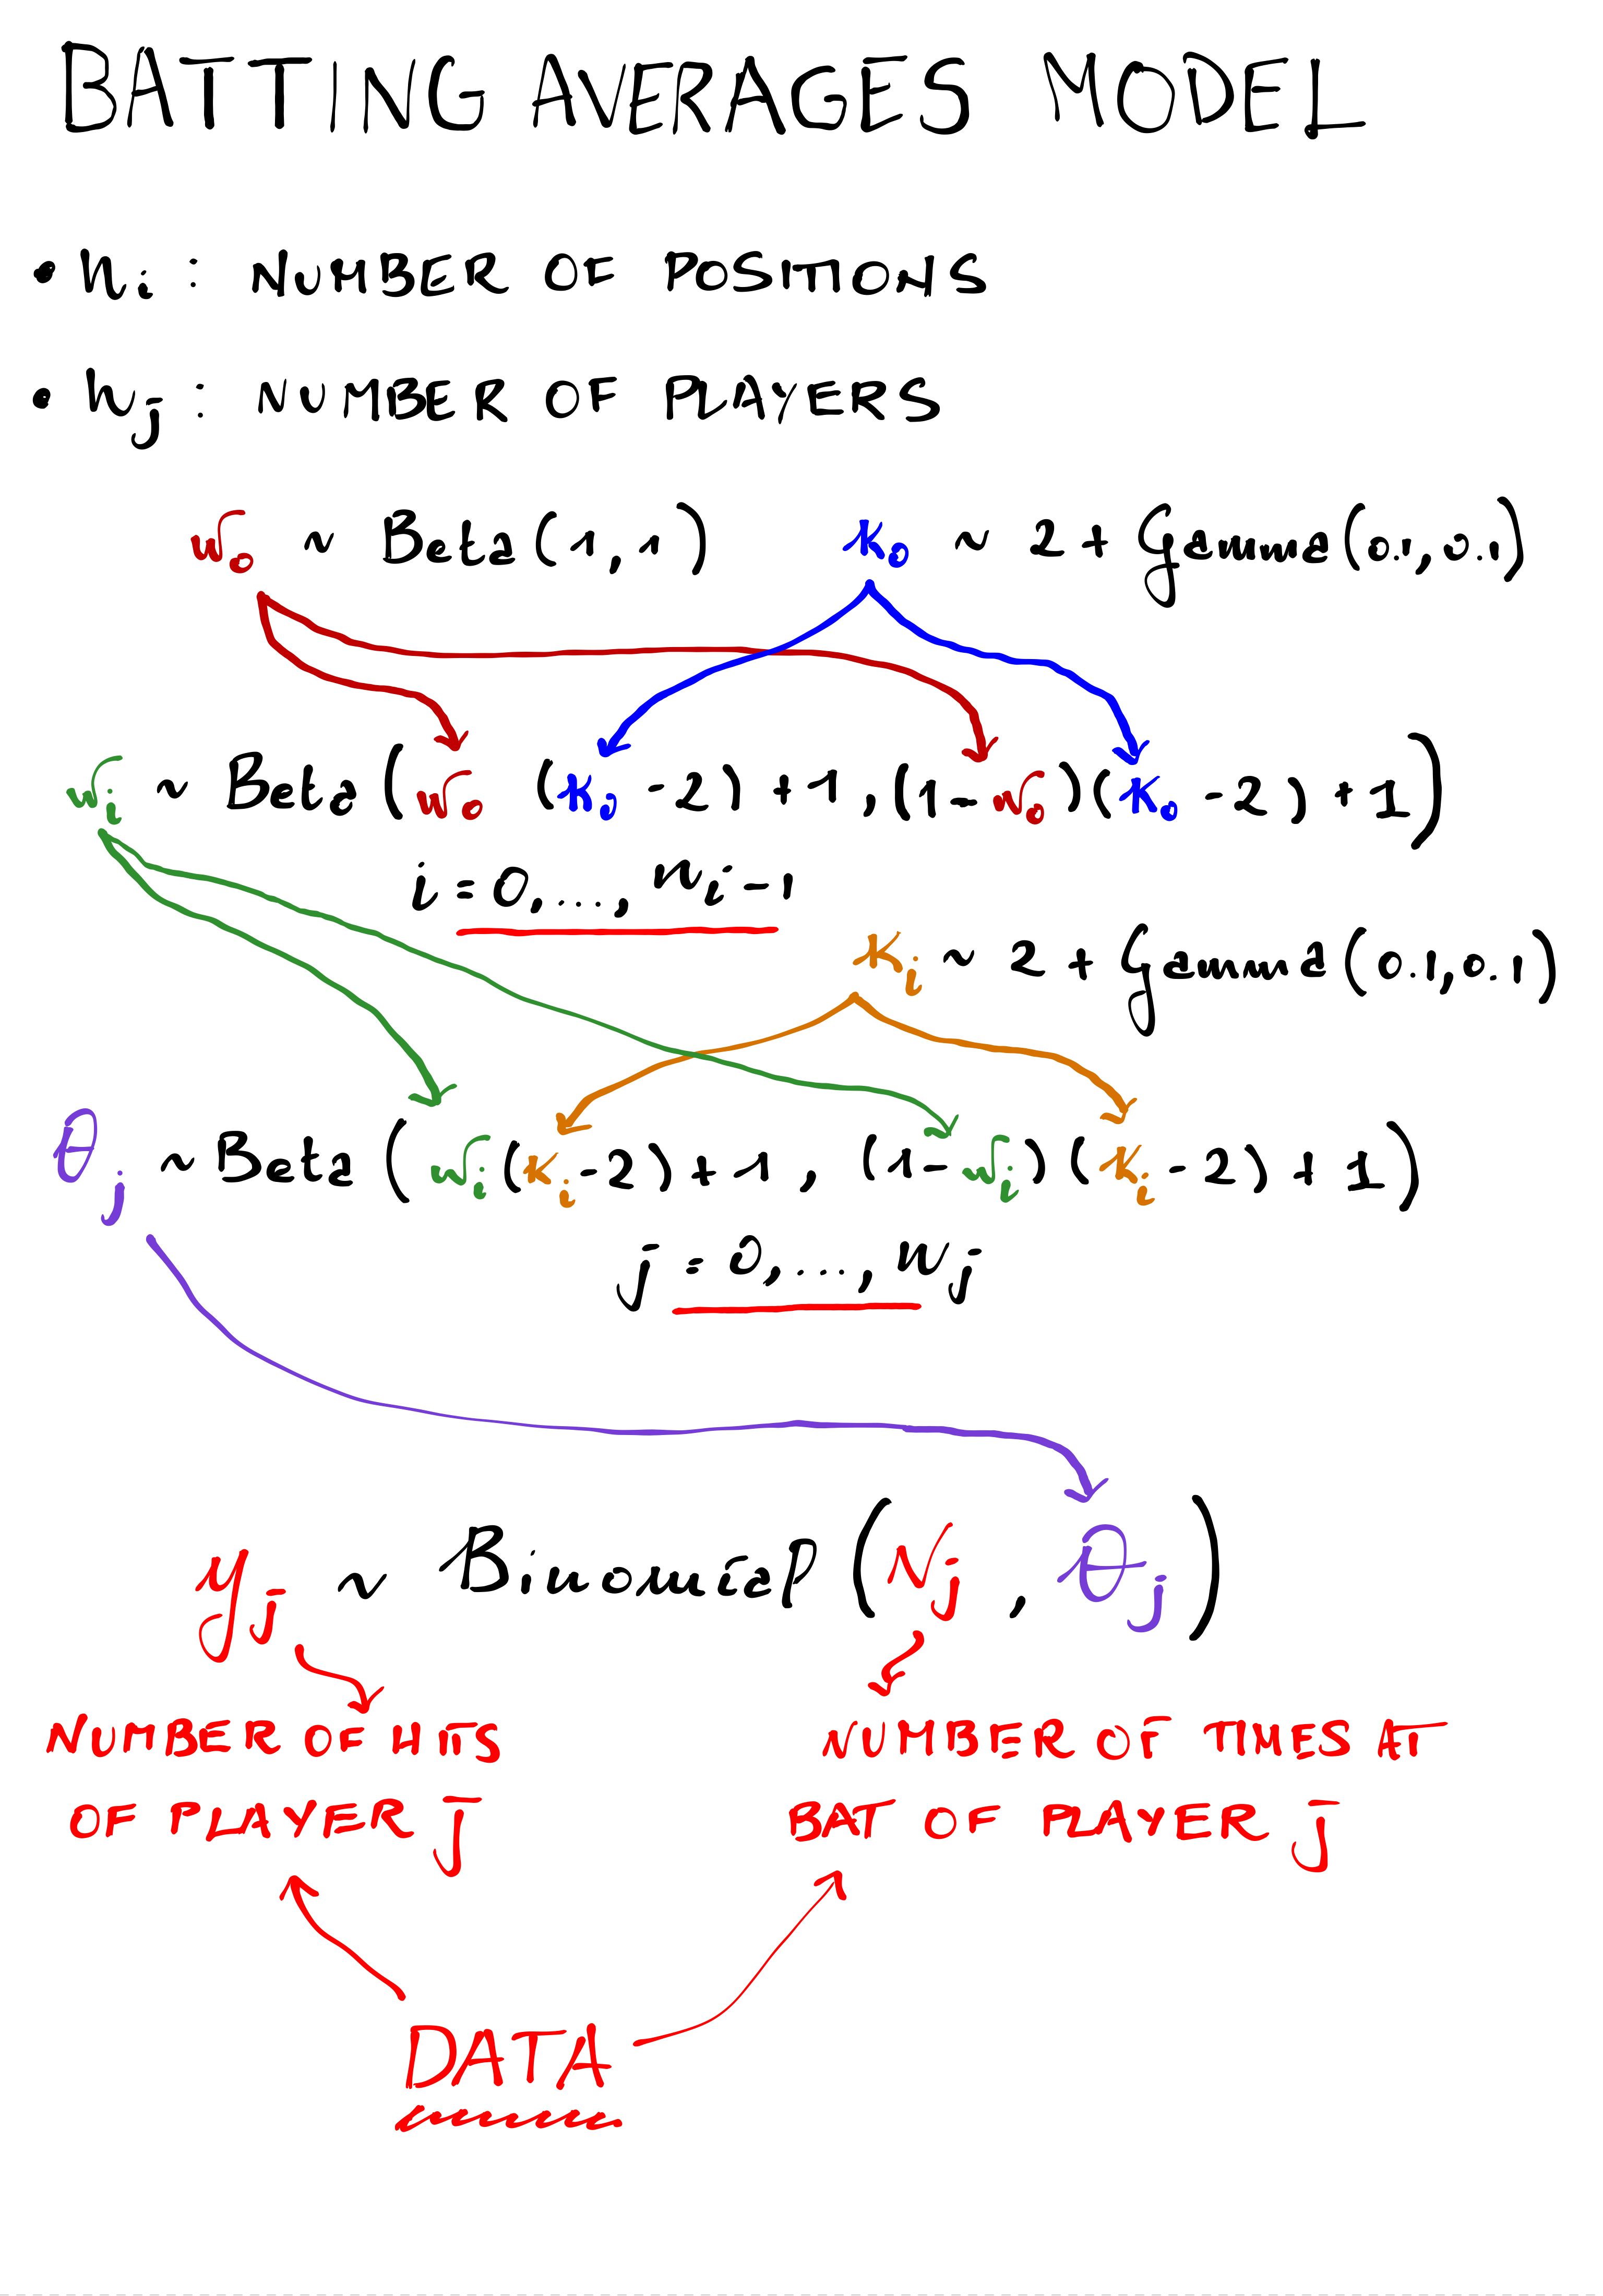 BATTING AVERAGES MODEL
• n_i : NUMBER OF POSITIONS
• n_j : NUMBER OF PLAYERS
w_0 ~ Beta(1,1) K_0 ~ 2 + Gamma(0.1, 0.1)
w_i ~ Beta(w_0 (K_0 -2) +1, (1-w_0)(K_0 -2) +1)
i = 0, ..., n_i-1
K_i ~ 2 + Gamma(0.1, 0.1)
θ_j ~ Beta(w_i(K_i-2)+1, (1-w_i)(K_i-2)+1)
j = 0, ..., n_j
y_j ~ Binomial(N_j, θ_j)
NUMBER OF HITS NUMBER OF TIMES AT
OF PLAYER j BAT OF PLAYER j
DATA